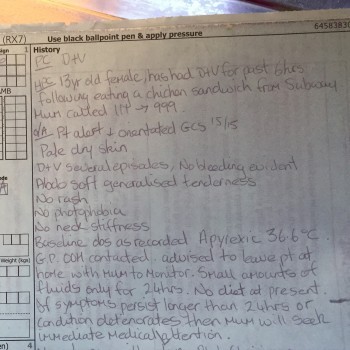 (RX7) Use black ballpoint pen & apply pressure 64583830
1 History
PC D+V
HPC 13yr old female, has had D+V for past 6hrs
following eating a chicken sandwich from Subway
Mum called 111 → 999.
O/A Pt alert + orientated GCS 15/15
Pale dry skin
D+V several episodes, No bleeding evident
Abdo soft generalised tenderness
No rash
No photophobia
No neck stiffness
Baseline obs as recorded. Apyrexic 36.6°C.
G.P. OOH contacted, advised to leave pt at
home with Mum to Monitor. Small amounts of
fluids only for 24hrs. No diet at present.
If symptoms persist longer than 24hrs or
condition deteriorates then Mum will seek
immediate Medical Attention.
Weight (kgs)
4